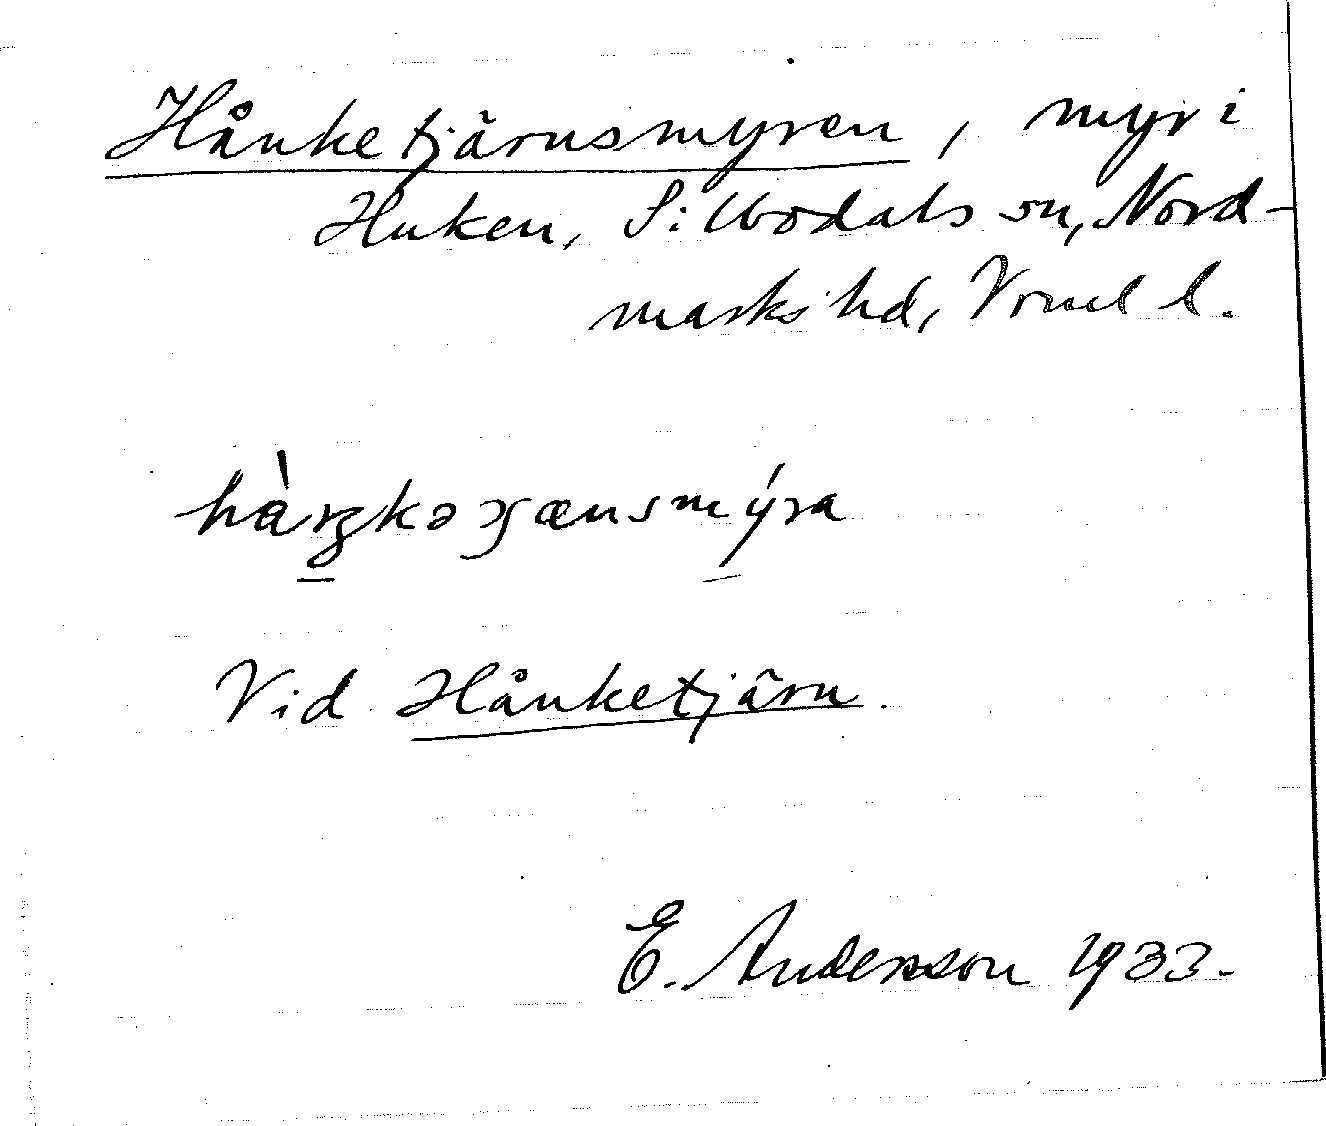 Hånketjärnsmyren, myr i
Huken, Sillbodals sn, Nord-
marks hd, Vrml l.
Vid Hånketjärn.
E. Anderson 1933.